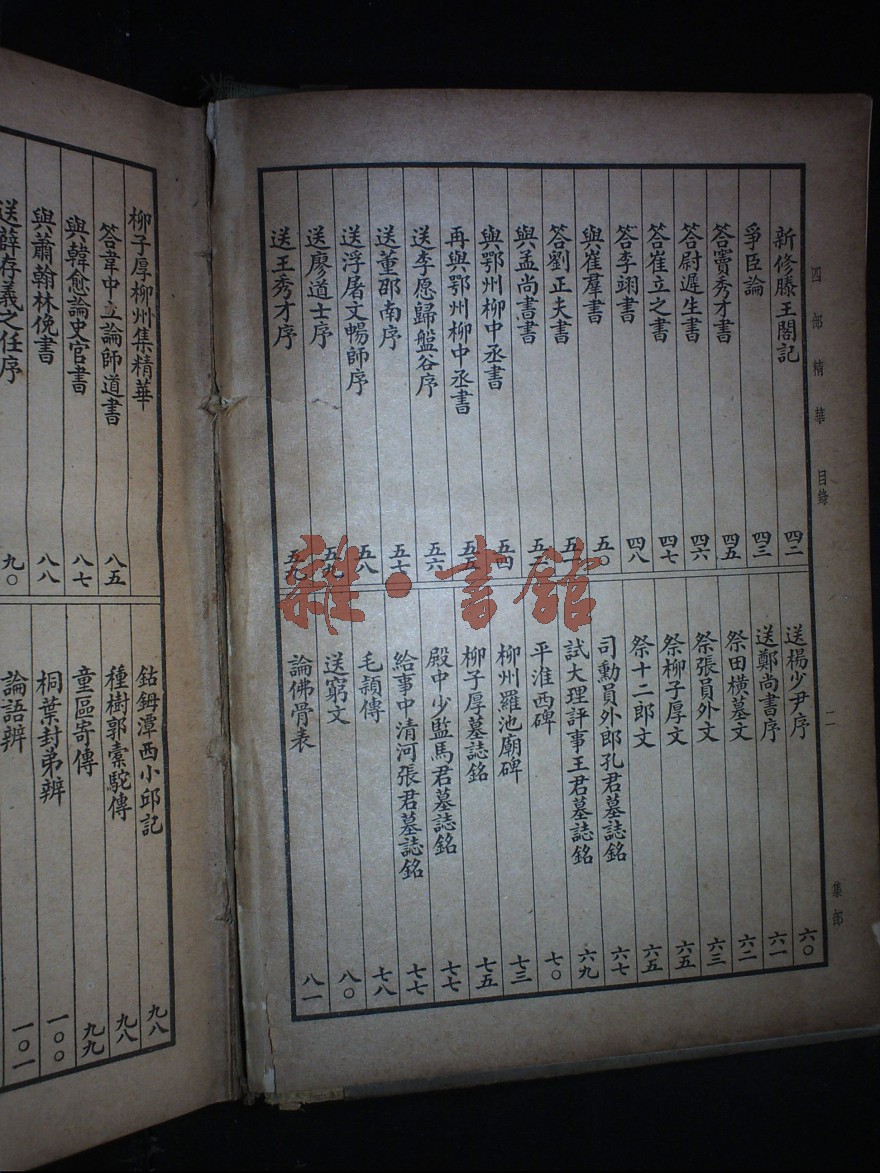 四部精華 目錄 二 集部
新修滕王閣記 四二
爭臣論 四三
答竇秀才書 四五
答尉遲生書 四六
答崔立之書 四七
答李翊書 四八
與崔羣書 五〇
答劉正夫書
與孟尚書書
與鄂州柳中丞書 五四
再與鄂州柳中丞書 五五
送李愿歸盤谷序 五六
送董邵南序 五七
送浮屠文暢師序 五八
送廖道士序 五九
送王秀才序 五九
送楊少尹序 六〇
送鄭尚書序 六一
祭田橫墓文 六二
祭張員外文 六三
祭柳子厚文 六五
祭十二郎文 六五
司勳員外郎孔君墓誌銘 六七
試大理評事王君墓誌銘 六九
平淮西碑 七〇
柳州羅池廟碑 七三
柳子厚墓誌銘 七五
殿中少監馬君墓誌銘 七七
給事中清河張君墓誌銘 七七
毛頴傳 七八
送窮文 八〇
論佛骨表 八一
雜·書館
柳子厚柳州集精華
答韋中立論師道書 八五
與韓愈論史官書 八七
與蕭翰林俛書 八八
送薛存義之任序 九〇
鈷鉧潭西小邱記 九八
種樹郭橐駝傳 九八
童區寄傳 九九
桐葉封弟辨 一〇〇
論語辨 一〇一